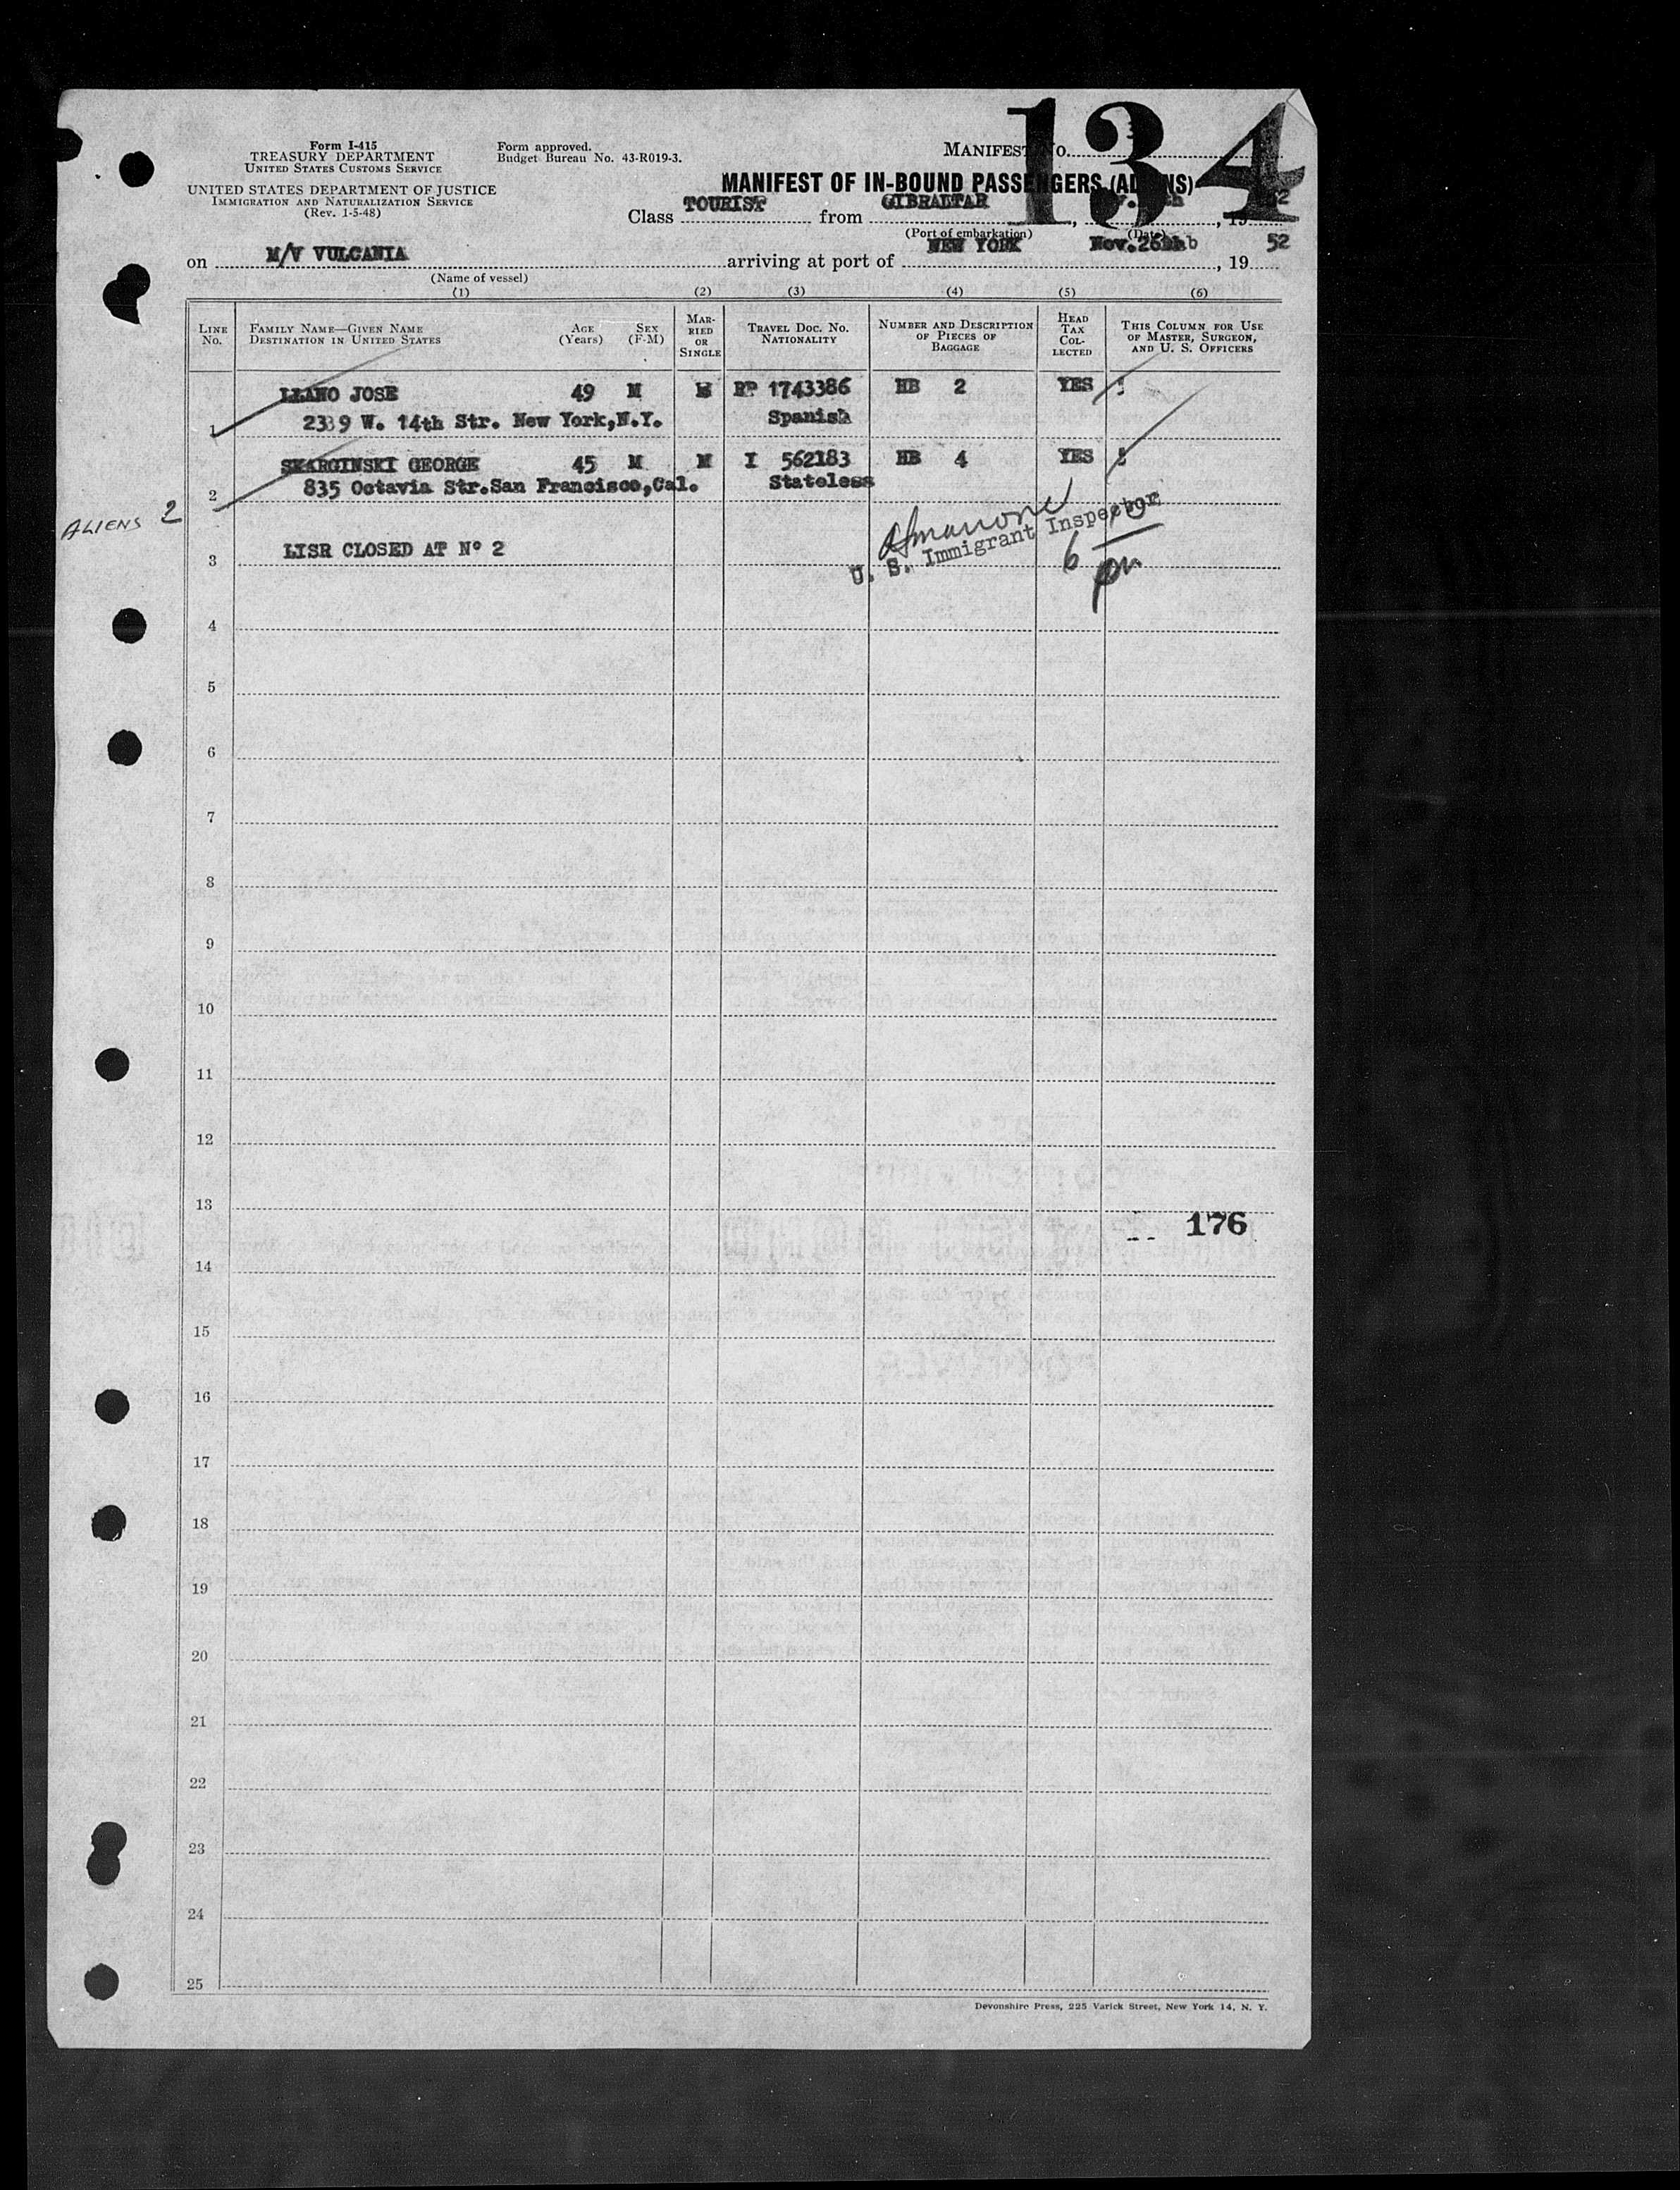 134
Form I-415
TREASURY DEPARTMENT
UNITED STATES CUSTOMS SERVICE
UNITED STATES DEPARTMENT OF JUSTICE
IMMIGRATION AND NATURALIZATION SERVICE
(Rev. 1-5-48)
Form approved.
Budget Bureau No. 43-R019-3.
MANIFEST No.
MANIFEST OF IN-BOUND PASSENGERS (ALIENS)
Class TOURIST from GIBRALTAR, 19
(Port of embarkation) (Date)
on M/V VULCANIA arriving at port of NEW YORK Nov. , 19 52
(Name of vessel)
(1) (2) (3) (4) (5) (6)
LINE No.
FAMILY NAME—GIVEN NAME
DESTINATION IN UNITED STATES
AGE (Years)
SEX (F-M)
MARRIED OR SINGLE
TRAVEL DOC. NO.
NATIONALITY
NUMBER AND DESCRIPTION OF PIECES OF BAGGAGE
HEAD TAX COLLECTED
THIS COLUMN FOR USE OF MASTER, SURGEON, AND U. S. OFFICERS
1 LLANO JOSE 49 M 1743386 HB 2 YES
W. 14th Str. New York,N.Y. Spanish
2 SKARGINSKI GEORGE 45 M M I 562183 HB 4 YES
835 Octavia Str.San Francisco,Cal. Stateless
ALIENS 2
U. S. Immigrant Inspector
3 LISR CLOSED AT N° 2
6 pm
4
5
6
7
8
9
10
11
12
13
176
14
15
16
17
18
19
20
21
22
23
24
25
Devonshire Press, 225 Varick Street, New York 14, N. Y.